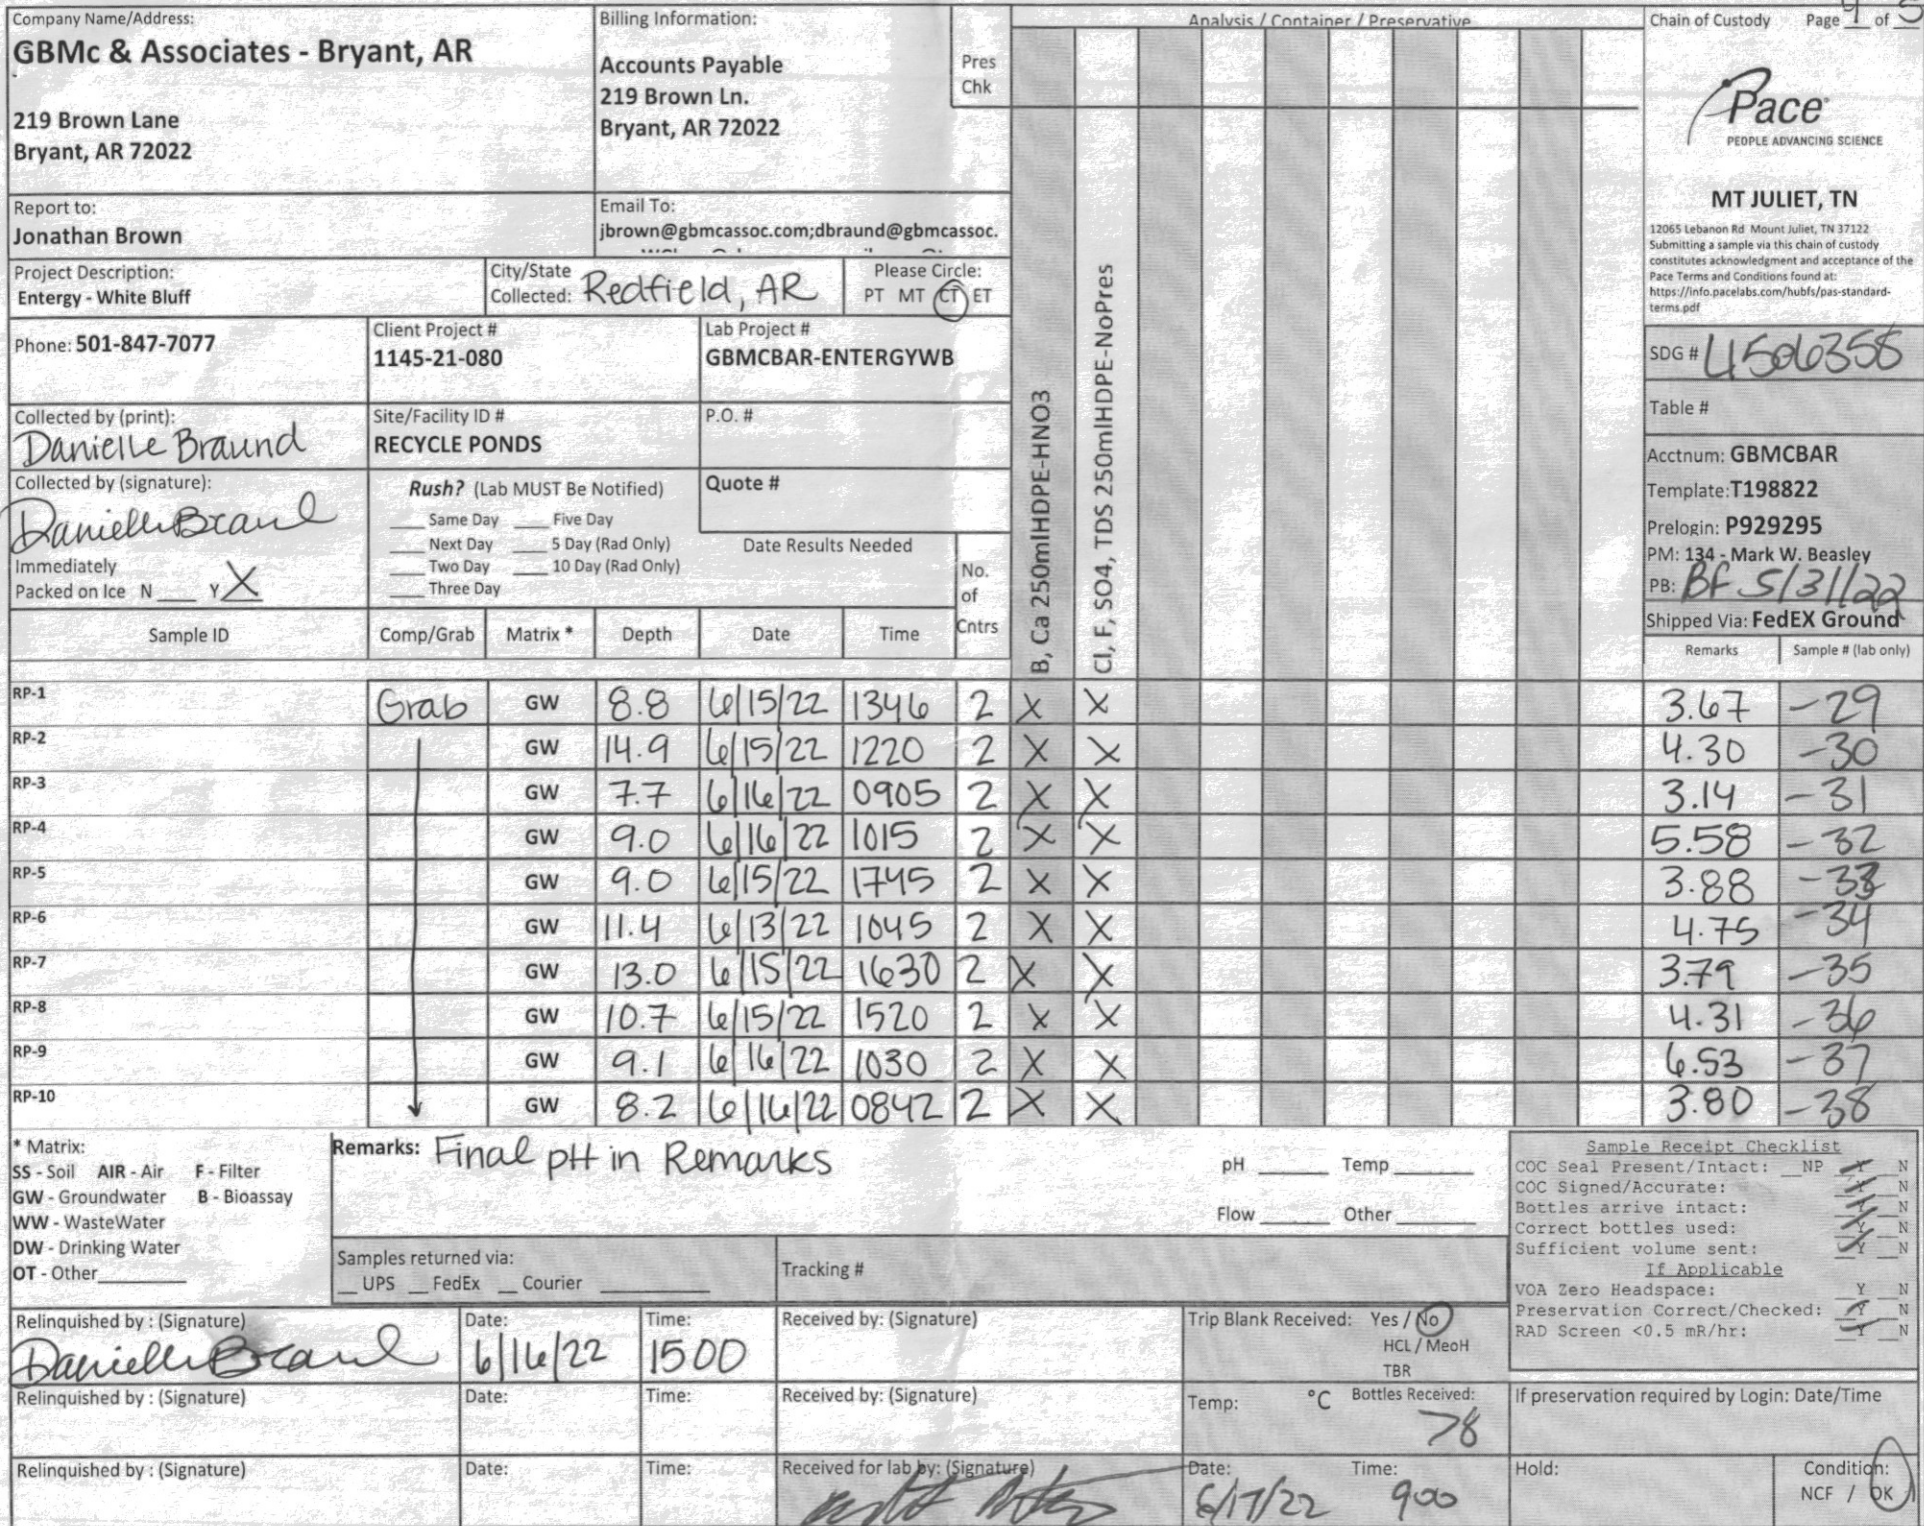 Company Name/Address:
GBMc & Associates - Bryant, AR
219 Brown Lane
Bryant, AR 72022
Billing Information:
Accounts Payable
219 Brown Ln.
Bryant, AR 72022
Pres
Chk
Analysis / Container / Preservative
Chain of Custody Page of
Pace
PEOPLE ADVANCING SCIENCE
MT JULIET, TN
12065 Lebanon Rd Mount Juliet, TN 37122
Submitting a sample via this chain of custody
constitutes acknowledgment and acceptance of the
Pace Terms and Conditions found at:
https://info.pacelabs.com/hubfs/pas-standard-
terms.pdf
Report to:
Jonathan Brown
Email To:
jbrown@gbmcassoc.com;dbraund@gbmcassoc.
Project Description:
Entergy - White Bluff
City/State
Collected: Redfield, AR
Please Circle:
PT MT CT ET
Phone: 501-847-7077
Client Project #
1145-21-080
Lab Project #
GBMCBAR-ENTERGYWB
Collected by (print):
Danielle Braund
Site/Facility ID #
RECYCLE PONDS
P.O. #
Collected by (signature):
Danielle Braund
Rush? (Lab MUST Be Notified)
Same Day Five Day
Next Day 5 Day (Rad Only)
Two Day 10 Day (Rad Only)
Three Day
Quote #
Date Results Needed
Immediately
Packed on Ice N Y X
No.
of
Cntrs
B, Ca 250mlHDPE-HNO3
Cl, F, SO4, TDS 250mlHDPE-NoPres
SDG # L1506358
Table #
Acctnum: GBMCBAR
Template:T198822
Prelogin: P929295
PM: 134 - Mark W. Beasley
PB: BF 5/31/22
Shipped Via: FedEX Ground
Sample ID Comp/Grab Matrix * Depth Date Time Remarks Sample # (lab only)
RP-1 Grab GW 8.8 6/15/22 1346 2 X X 3.67 -29
RP-2 GW 14.9 6/15/22 1220 2 X X 4.30 -30
RP-3 GW 7.7 6/16/22 0905 2 X X 3.14 -31
RP-4 GW 9.0 6/16/22 1015 2 X X 5.58 -32
RP-5 GW 9.0 6/15/22 1745 2 X X 3.88 -33
RP-6 GW 11.4 6/13/22 1045 2 X X 4.75 -34
RP-7 GW 13.0 6/15/22 1630 2 X X 3.79 -35
RP-8 GW 10.7 6/15/22 1520 2 X X 4.31 -36
RP-9 GW 9.1 6/16/22 1030 2 X X 6.53 -37
RP-10 GW 8.2 6/16/22 0842 2 X X 3.80 -38
* Matrix:
SS - Soil AIR - Air F - Filter
GW - Groundwater B - Bioassay
WW - WasteWater
DW - Drinking Water
OT - Other
Remarks: Final pH in Remarks
pH Temp
Flow Other
Samples returned via:
UPS FedEx Courier
Tracking #
Sample Receipt Checklist
COC Seal Present/Intact: NP Y N
COC Signed/Accurate: Y N
Bottles arrive intact: Y N
Correct bottles used: Y N
Sufficient volume sent: Y N
If Applicable
VOA Zero Headspace: Y N
Preservation Correct/Checked: Y N
RAD Screen <0.5 mR/hr: Y N
Relinquished by : (Signature)
Danielle Braund
Date:
6/16/22
Time:
1500
Received by: (Signature)
Trip Blank Received: Yes / No
HCL / MeoH
TBR
Relinquished by : (Signature)
Date:
Time:
Received by: (Signature)
Temp: °C Bottles Received:
78
If preservation required by Login: Date/Time
Relinquished by : (Signature)
Date:
Time:
Received for lab by: (Signature)
Date:
6/17/22
Time:
900
Hold:
Condition:
NCF / OK